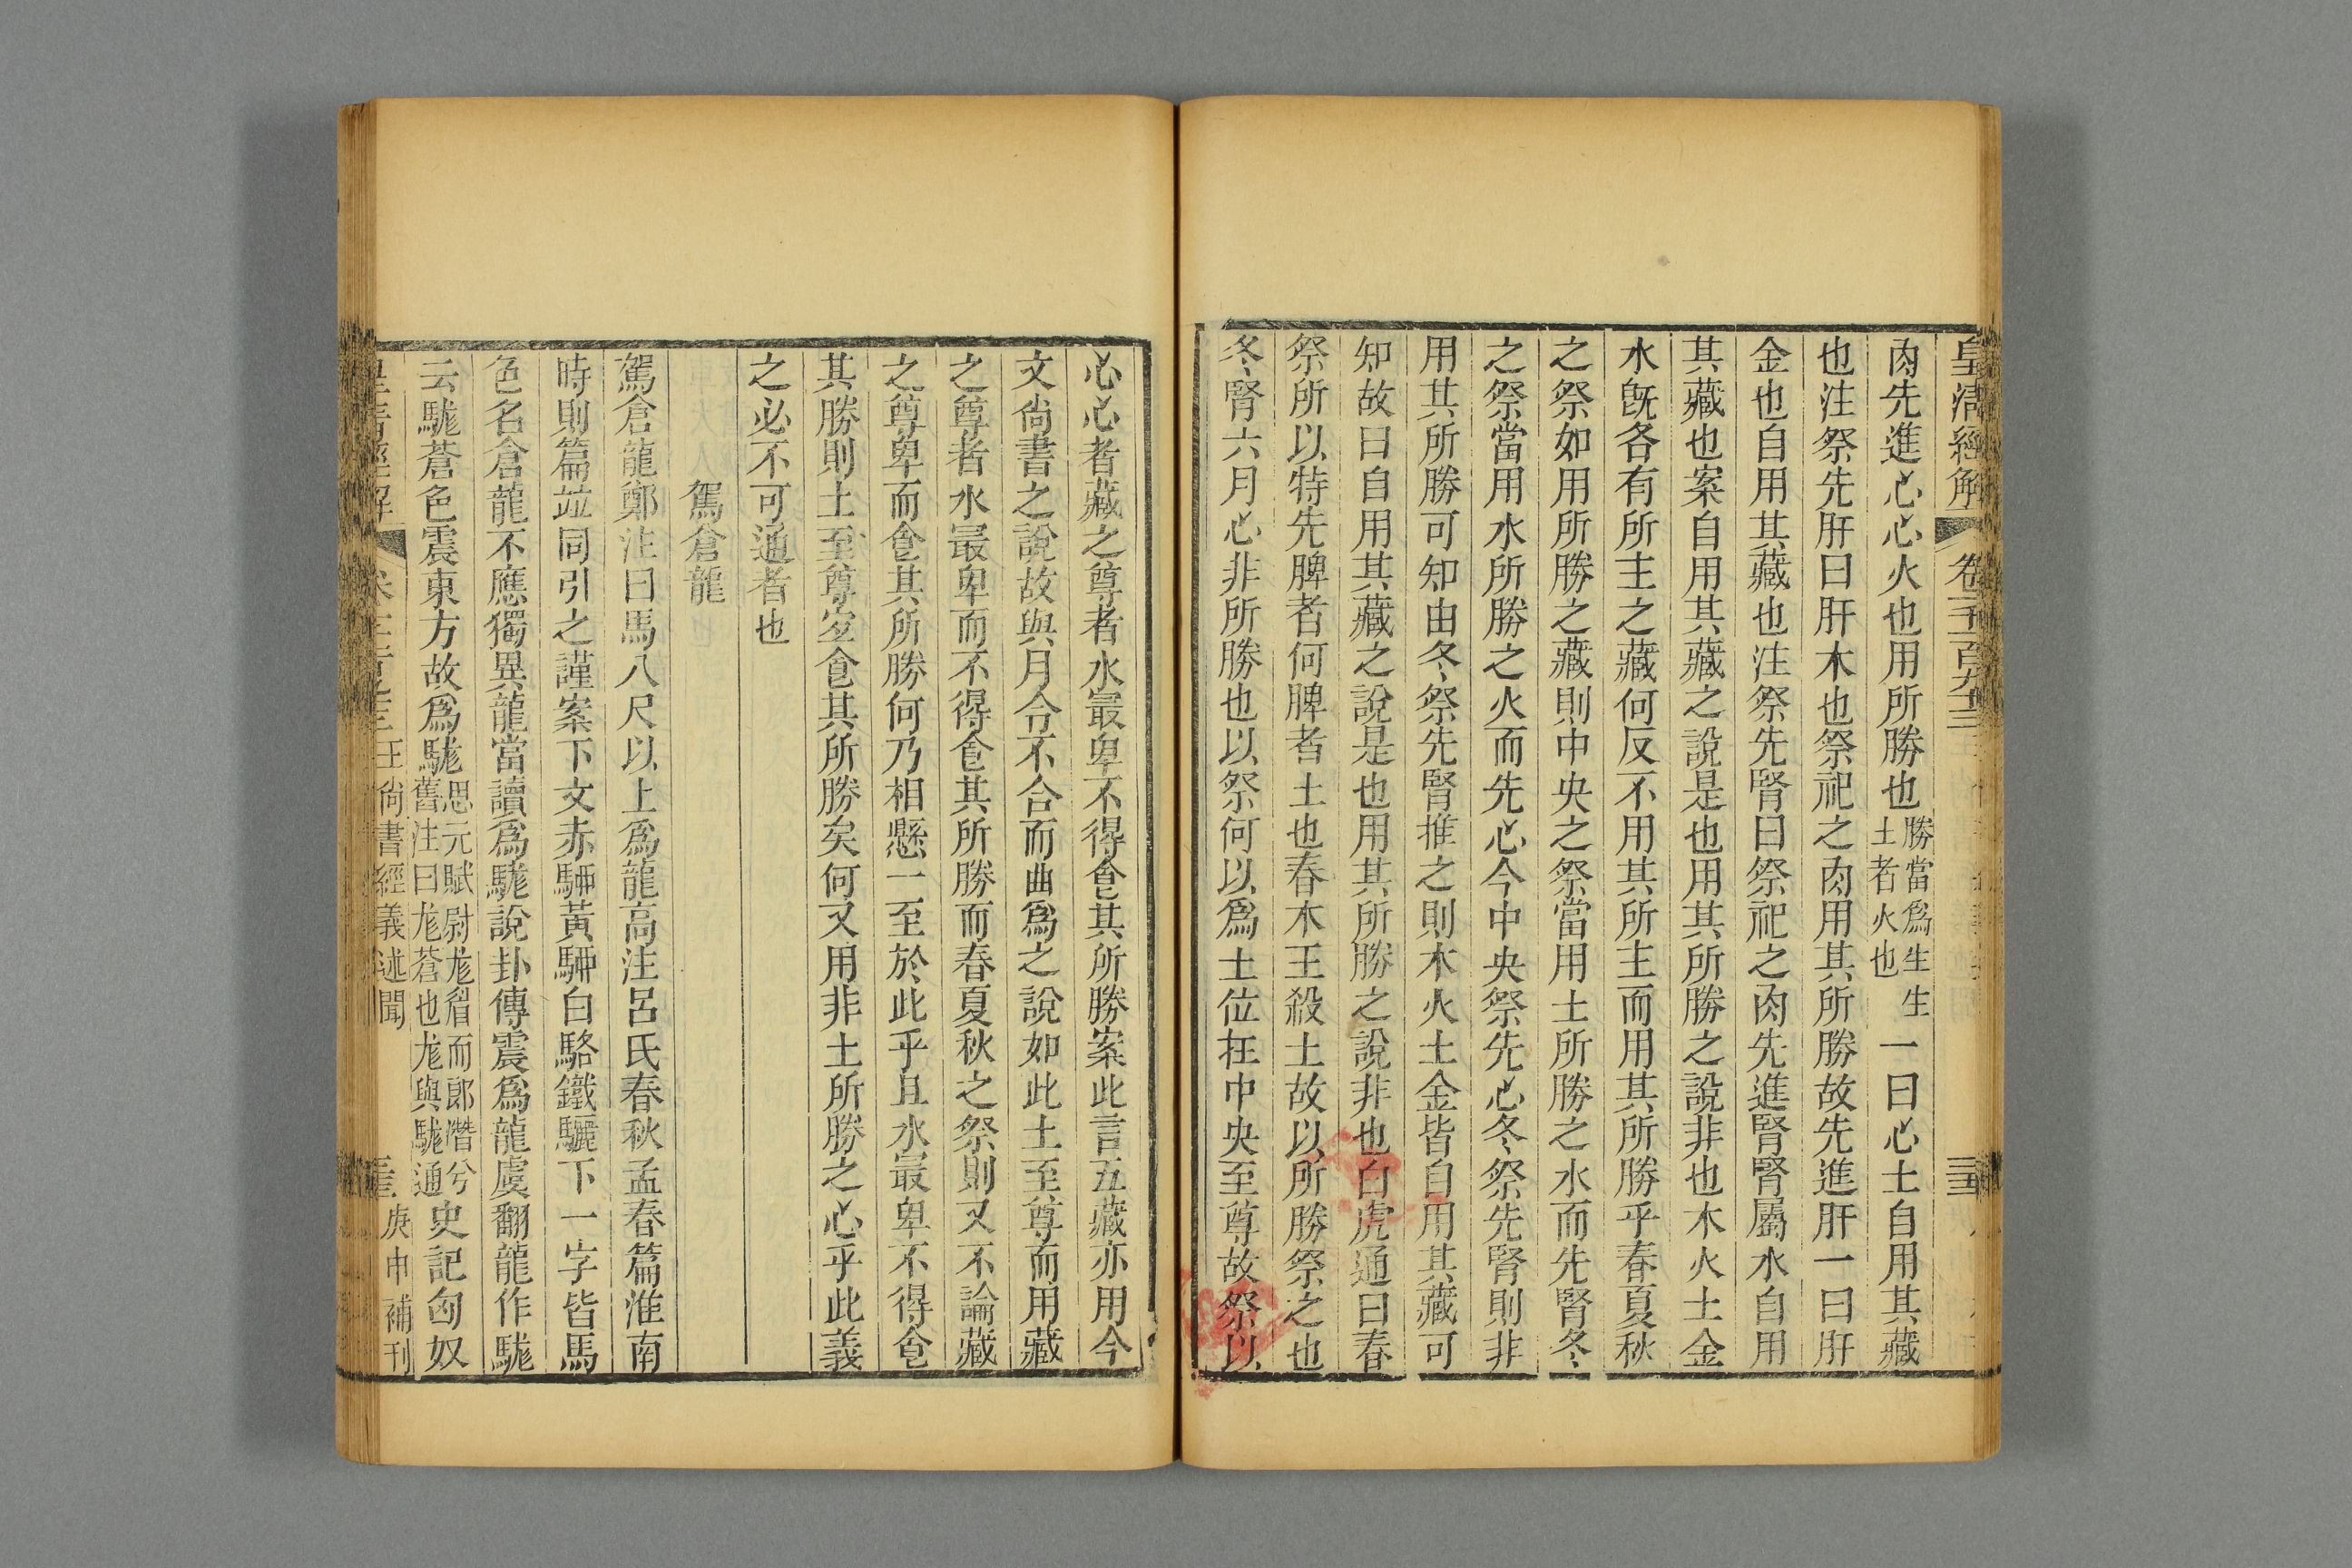 皇清經解
卷一千一百九十三
肉先進心心火也用所勝也勝當爲生生土者火也一曰心土自用其藏
也注祭先肝曰肝木也祭祀之肉用其所勝故先進肝一曰肝
金也自用其藏也注祭先腎曰祭祀之肉先進腎腎屬水自用
其藏也案自用其藏之說是也用其所勝之說非也木火土金
水旣各有所主之藏何反不用其所主而用其所勝乎春夏秋
之祭如用所勝之藏則中央之祭當用土所勝之水而先腎冬
之祭當用水所勝之火而先心今中央祭先心冬祭先腎則非
用其所勝可知由冬祭先腎推之則木火土金皆自用其藏可
知故曰自用其藏之說是也用其所勝之說非也白虎通曰春
祭所以特先脾者何脾者土也春木王殺土故以所勝祭之也
冬腎六月心非所勝也以祭何以爲土位在中央至尊故祭以
心心者藏之尊者水最卑不得食其所勝案此言五藏亦用今
文尙書之說故與月令不合而曲爲之說如此土至尊而用藏
之尊者水最卑而不得食其所勝而春夏秋之祭則又不論藏
之尊卑而食其所勝何乃相懸一至於此乎且水最卑不得食
其勝則土至尊宜食其所勝矣何又用非土所勝之心乎此義
之必不可通者也
駕倉龍
駕倉龍鄭注曰馬八尺以上爲龍高注呂氏春秋孟春篇淮南
時則篇竝同引之謹案下文赤駵黃駵白駱鐵驪下一字皆馬
色名倉龍不應獨異龍當讀爲駹說卦傳震爲龍虞翻龍作駹
云駹蒼色震東方故爲駹思元賦尉尨眉而郞潛兮舊注曰尨蒼也尨與駹通史記匈奴
王尙書經義述聞
庚申補刊